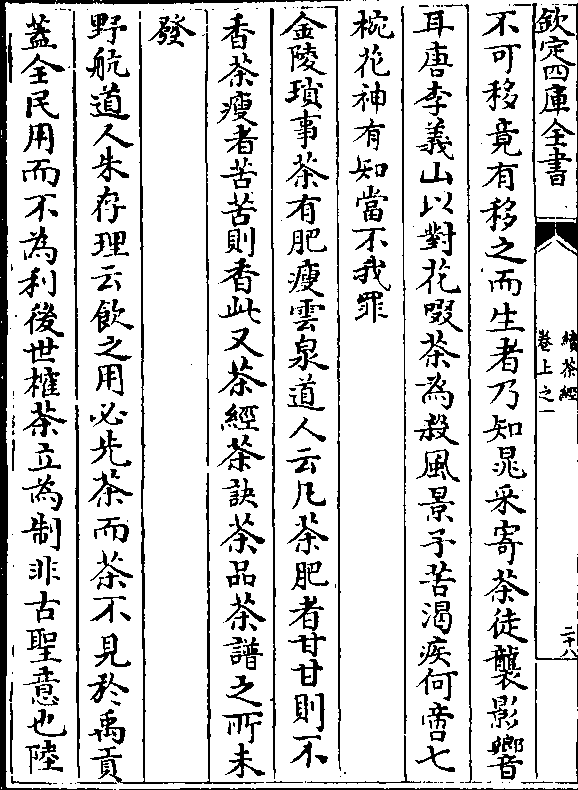 欽定四庫全書
續茶經
卷上之一
二十八
不可移竟有移之而生者乃知晁采寄茶徒襲影響
耳唐李義山以對花啜茶為殺風景予苦渴疾何啻七
椀花神有知當不我罪
金陵瑣事茶有肥瘦雲泉道人云凡茶肥者甘甘則不
香茶瘦者苦苦則香此又茶經茶訣茶品茶譜之所未
發
野航道人朱存理云飲之用必先茶而茶不見於禹貢
蓋全民用而不為利後世榷茶立為制非古聖意也陸